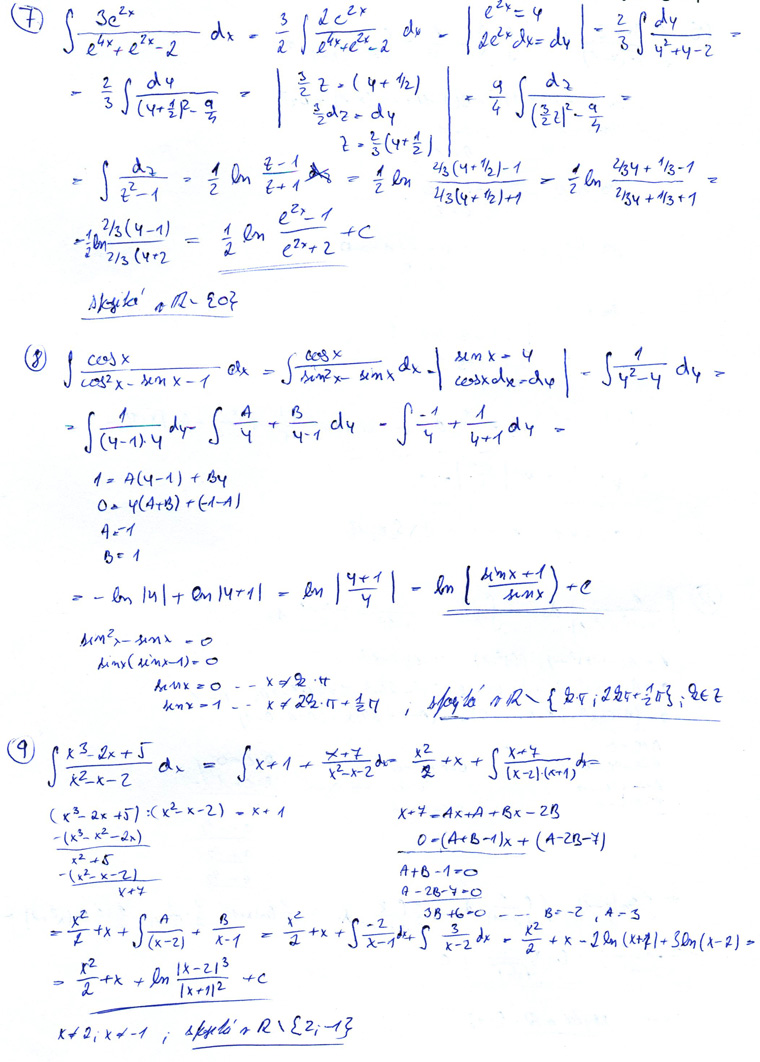 7) ∫ 3e^{2x}/(e^{4x}+e^{2x}-2) dx = 3/2 ∫ 2e^{2x}/(e^{4x}+e^{2x}-2) dx = | e^{2x}=y ; 2e^{2x}dx=dy | = 2/3 ∫ dy/(y^2+y-2) =
= 2/3 ∫ dy/((y+1/2)^2 - 9/4) = | 3/2 z = (y+1/2) ; 3/2 dz = dy ; z = 2/3(y+1/2) | = 9/4 ∫ dz/((3/2 z)^2 - 9/4) =
= ∫ dz/(z^2-1) = 1/2 ln (z-1)/(z+1) = 1/2 ln (2/3(y+1/2)-1)/(2/3(y+1/2)+1) = 1/2 ln (2/3y+1/3-1)/(2/3y+1/3+1) =
= 1/2 ln (2/3(y-1))/(2/3(y+2) = 1/2 ln (e^{2x}-1)/(e^{2x}+2) + C
spojitá v R - {0}
8) ∫ cosx/(cos^2x - sinx - 1) dx = ∫ cosx/(sin^2x - sinx) dx = | sinx = y ; cosxdx = dy | = ∫ 1/(y^2-y) dy =
= ∫ 1/((y-1)·y) dy = ∫ A/y + B/(y-1) dy = ∫ -1/y + 1/(y+1) dy =
1 = A(y-1) + By
0 = y(A+B) + (-1-A)
A=-1
B = 1
= -ln|y| + ln|y+1| = ln |(y+1)/y| = ln |(sinx+1)/sinx) + C
sin^2x - sinx = 0
sinx(sinx-1) = 0
sinx = 0 -- x ≠ k·π
sinx = 1 -- x ≠ 2k·π + 1/2π ; spojitá v R \ {kπ ; 2kπ + 1/2π} ; k∈Z
9) ∫ (x^3-2x+5)/(x^2-x-2) dx = ∫ x+1 + (x+7)/(x^2-x-2) dx = x^2/2 + x + ∫ (x+7)/((x-2)·(x+1)) dx =
(x^3-2x+5) : (x^2-x-2) = x+1
-(x^3-x^2-2x)
x^2+5
-(x^2-x-2)
x+7
x+7 = Ax+A+Bx-2B
0 = (A+B-1)x + (A-2B-7)
A+B-1=0
A-2B-7=0
3B+6=0 --- B=-2, A=3
= x^2/2 + x + ∫ A/(x-2) + B/(x-1) = x^2/2 + x + ∫ -2/(x-1) dx + ∫ 3/(x-2) dx = x^2/2 + x - 2ln(x+1) + 3ln(x-2) =
= x^2/2 + x + ln |x-2|^3/|x+1|^2 + C
x≠2 ; x≠-1 ; spojitá v R \ {2;-1}